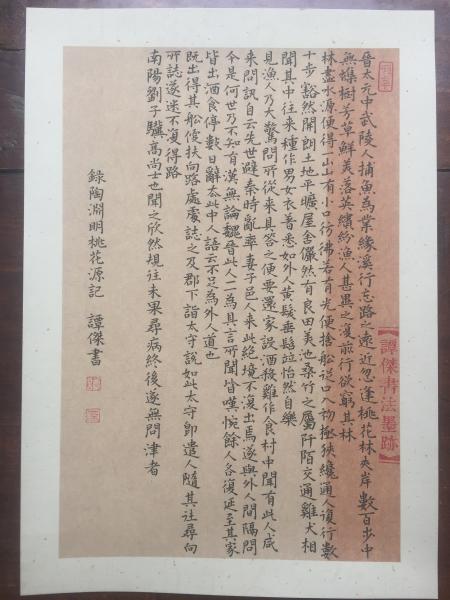 譚傑書法墨跡
晉太元中武陵人捕魚為業緣溪行忘路之遠近忽逢桃花林夾岸數百步中
無雜樹芳草鮮美落英繽紛漁人甚異之復前行欲窮其林
林盡水源便得一山山有小口彷彿若有光便捨船從口入初極狹纔通人復行數
十步豁然開朗土地平曠屋舍儼然有良田美池桑竹之屬阡陌交通雞犬相
聞其中往來種作男女衣著悉如外人黃髮垂髫竝怡然自樂
見漁人乃大驚問所從來具答之便要還家設酒殺雞作食村中聞有此人咸
來問訊自云先世避秦時亂率妻子邑人來此絕境不復出焉遂與外人間隔問
今是何世乃不知有漢無論魏晉此人一一為具言所聞皆嘆惋餘人各復延至其家
皆出酒食停數日辭去此中人語云不足為外人道也
既出得其船便扶向路處處誌之及郡下詣太守說如此太守即遣人隨其往尋向
所誌遂迷不復得路
南陽劉子驥高尚士也聞之欣然規往未果尋病終後遂無問津者
錄陶淵明桃花源記 譚傑書